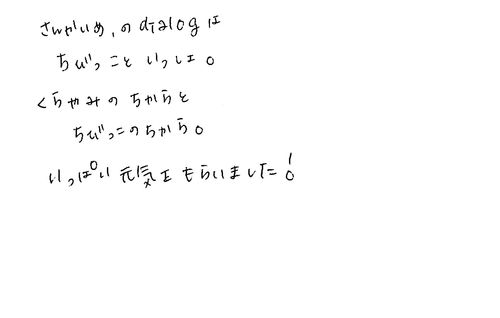 さんかいめ、の dialog は
ちびっこと いっしょ。
くらやみの ちからと
ちびっこのちから。
いっぱい 元気を もらいました！